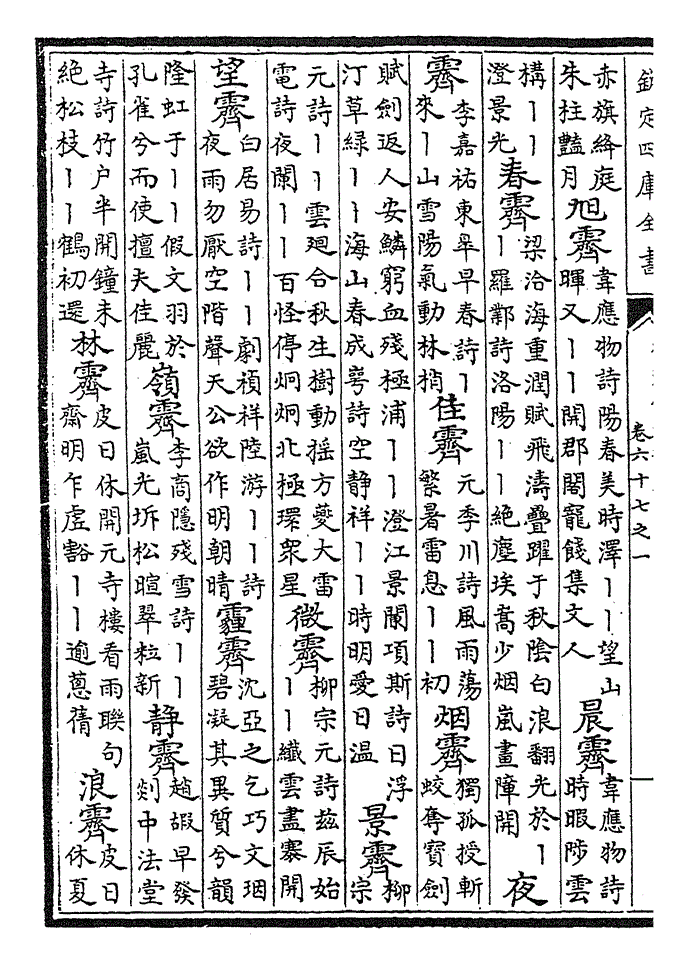 欽定四庫全書
卷六十七之一
赤旗絳庭朱柱豔月旭霽韋應物詩陽春美時澤丨丨望山暉又丨丨開郡閣寵餞集文人晨霽韋應物詩時暇陟雲
構丨丨澄景光春霽梁洽海重潤賦飛濤疊躍于秋陰白浪翻光於丨丨羅鄴詩洛陽丨丨絕塵埃嵩少烟嵐畫障開夜
霽李嘉祐東皋早春詩丨來丨山雪陽氣動林梢佳霽元季川詩風雨蕩繁暑雷息丨丨初烟霽獨孤授斬蛟奪寶劍
賦劍返人安鱗窮血殘極浦丨丨澄江景闌項斯詩日浮汀草綠丨丨海山春成咢詩空静祥丨丨時明愛日温景霽柳宗
元詩丨丨雲廻合秋生樹動摇方夔大雷電詩夜闌丨丨百怪停炯炯北極環衆星微霽柳宗元詩兹辰始丨丨纖雲盡褰開
望霽白居易詩丨丨劇禎祥陸游丨丨詩夜雨勿厭空階聲天公欲作明朝晴霾霽沈亞之乞巧文珚碧凝其異質兮韻
隆虹于丨丨假文羽於孔雀兮而使擅夫佳麗嶺霽李商隱殘雪詩丨丨嵐光坼松暄翠粒新静霽趙嘏早發剡中法堂
寺詩竹户半開鐘未絶松枝丨丨鶴初還林霽皮日休開元寺樓看雨聯句齋明乍虛豁丨丨逾蔥蒨浪霽皮日休夏